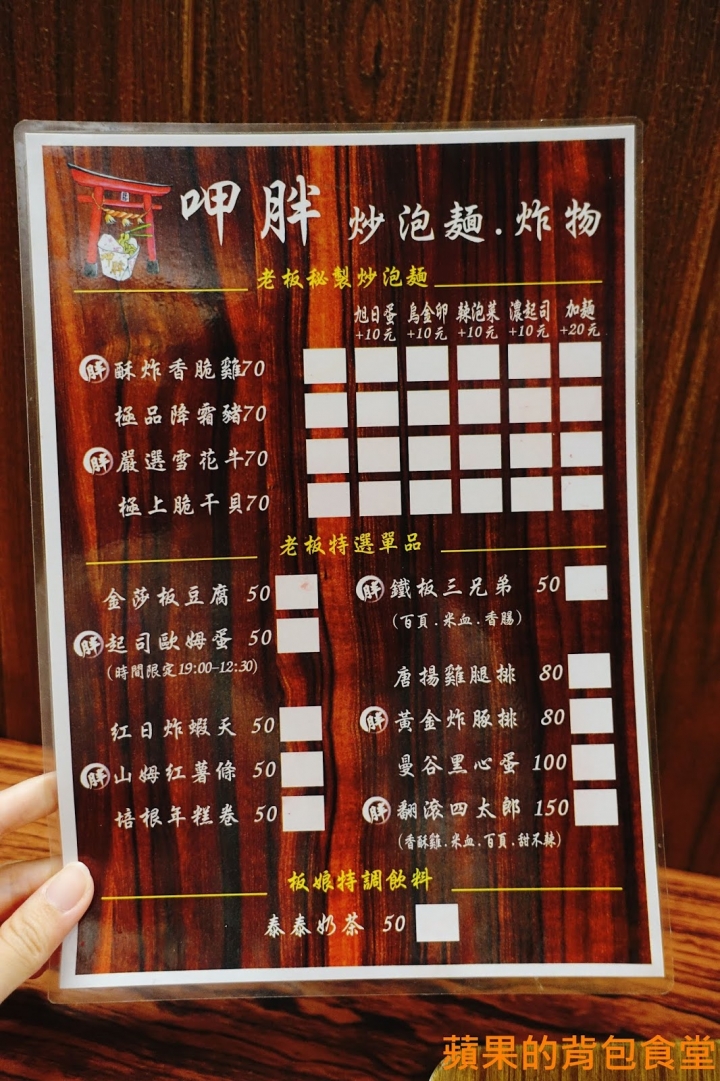 呷胖 炒泡麵.炸物
老板秘製炒泡麵
旭日蛋 烏金卵 辣泡菜 濃起司 加麵
+10元 +10元 +10元 +10元 +20元
胖 酥炸香脆雞70
極品降霜豬70
胖 嚴選雪花牛70
極上脆干貝70
老板特選單品
金莎板豆腐 50
胖 起司歐姆蛋 50
(時間限定19:00-12:30)
紅日炸蝦天 50
胖 山姆紅薯條 50
培根年糕卷 50
胖 鐵板三兄弟 50
(百頁.米血.香腸)
唐揚雞腿排 80
胖 黃金炸豚排 80
曼谷黑心蛋 100
胖 翻滾四太郎 150
(香酥雞.米血.百頁.甜不辣)
板娘特調飲料
泰泰奶茶 50
蘋果的背包食堂